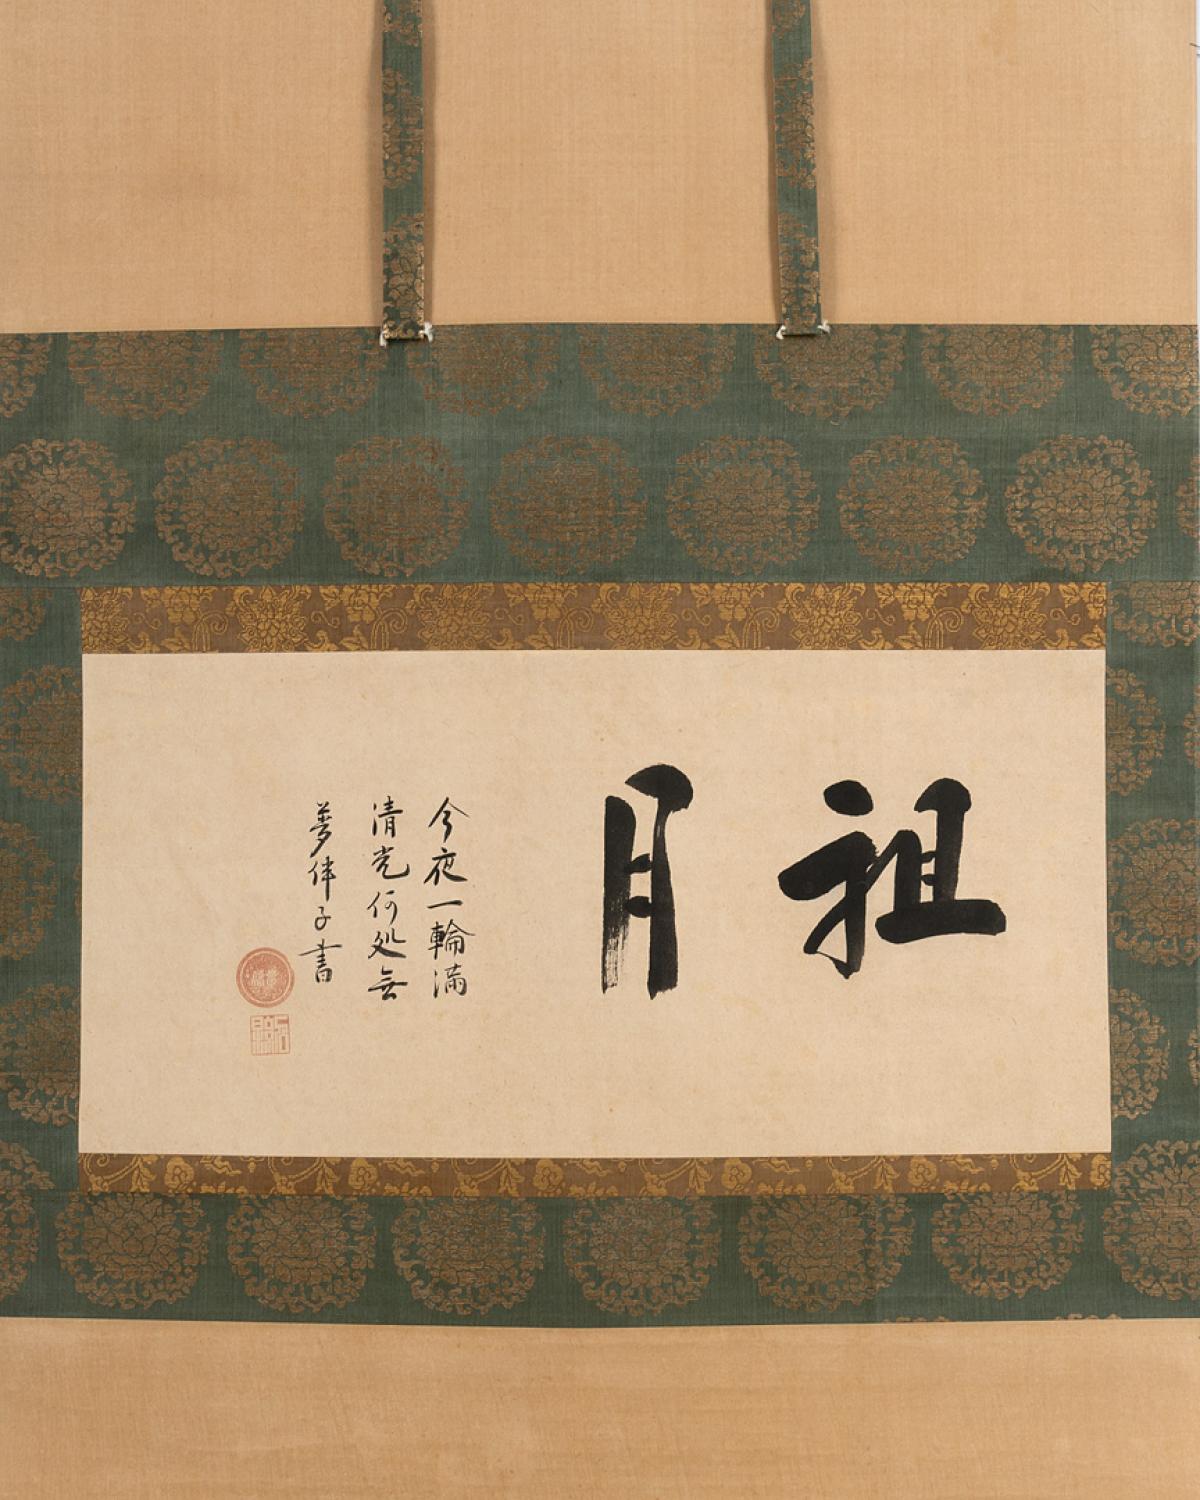 祖月
今夜一輪満
清光何処無
夢伴子書